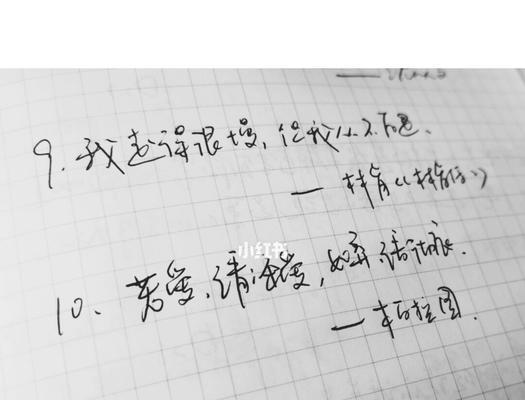 9. 我走得很慢, 但我从不后退.
— 林肯《林肯传》
小红书
10. 若爱, 请深爱, 如弃, 请彻底.
— 柏拉图.